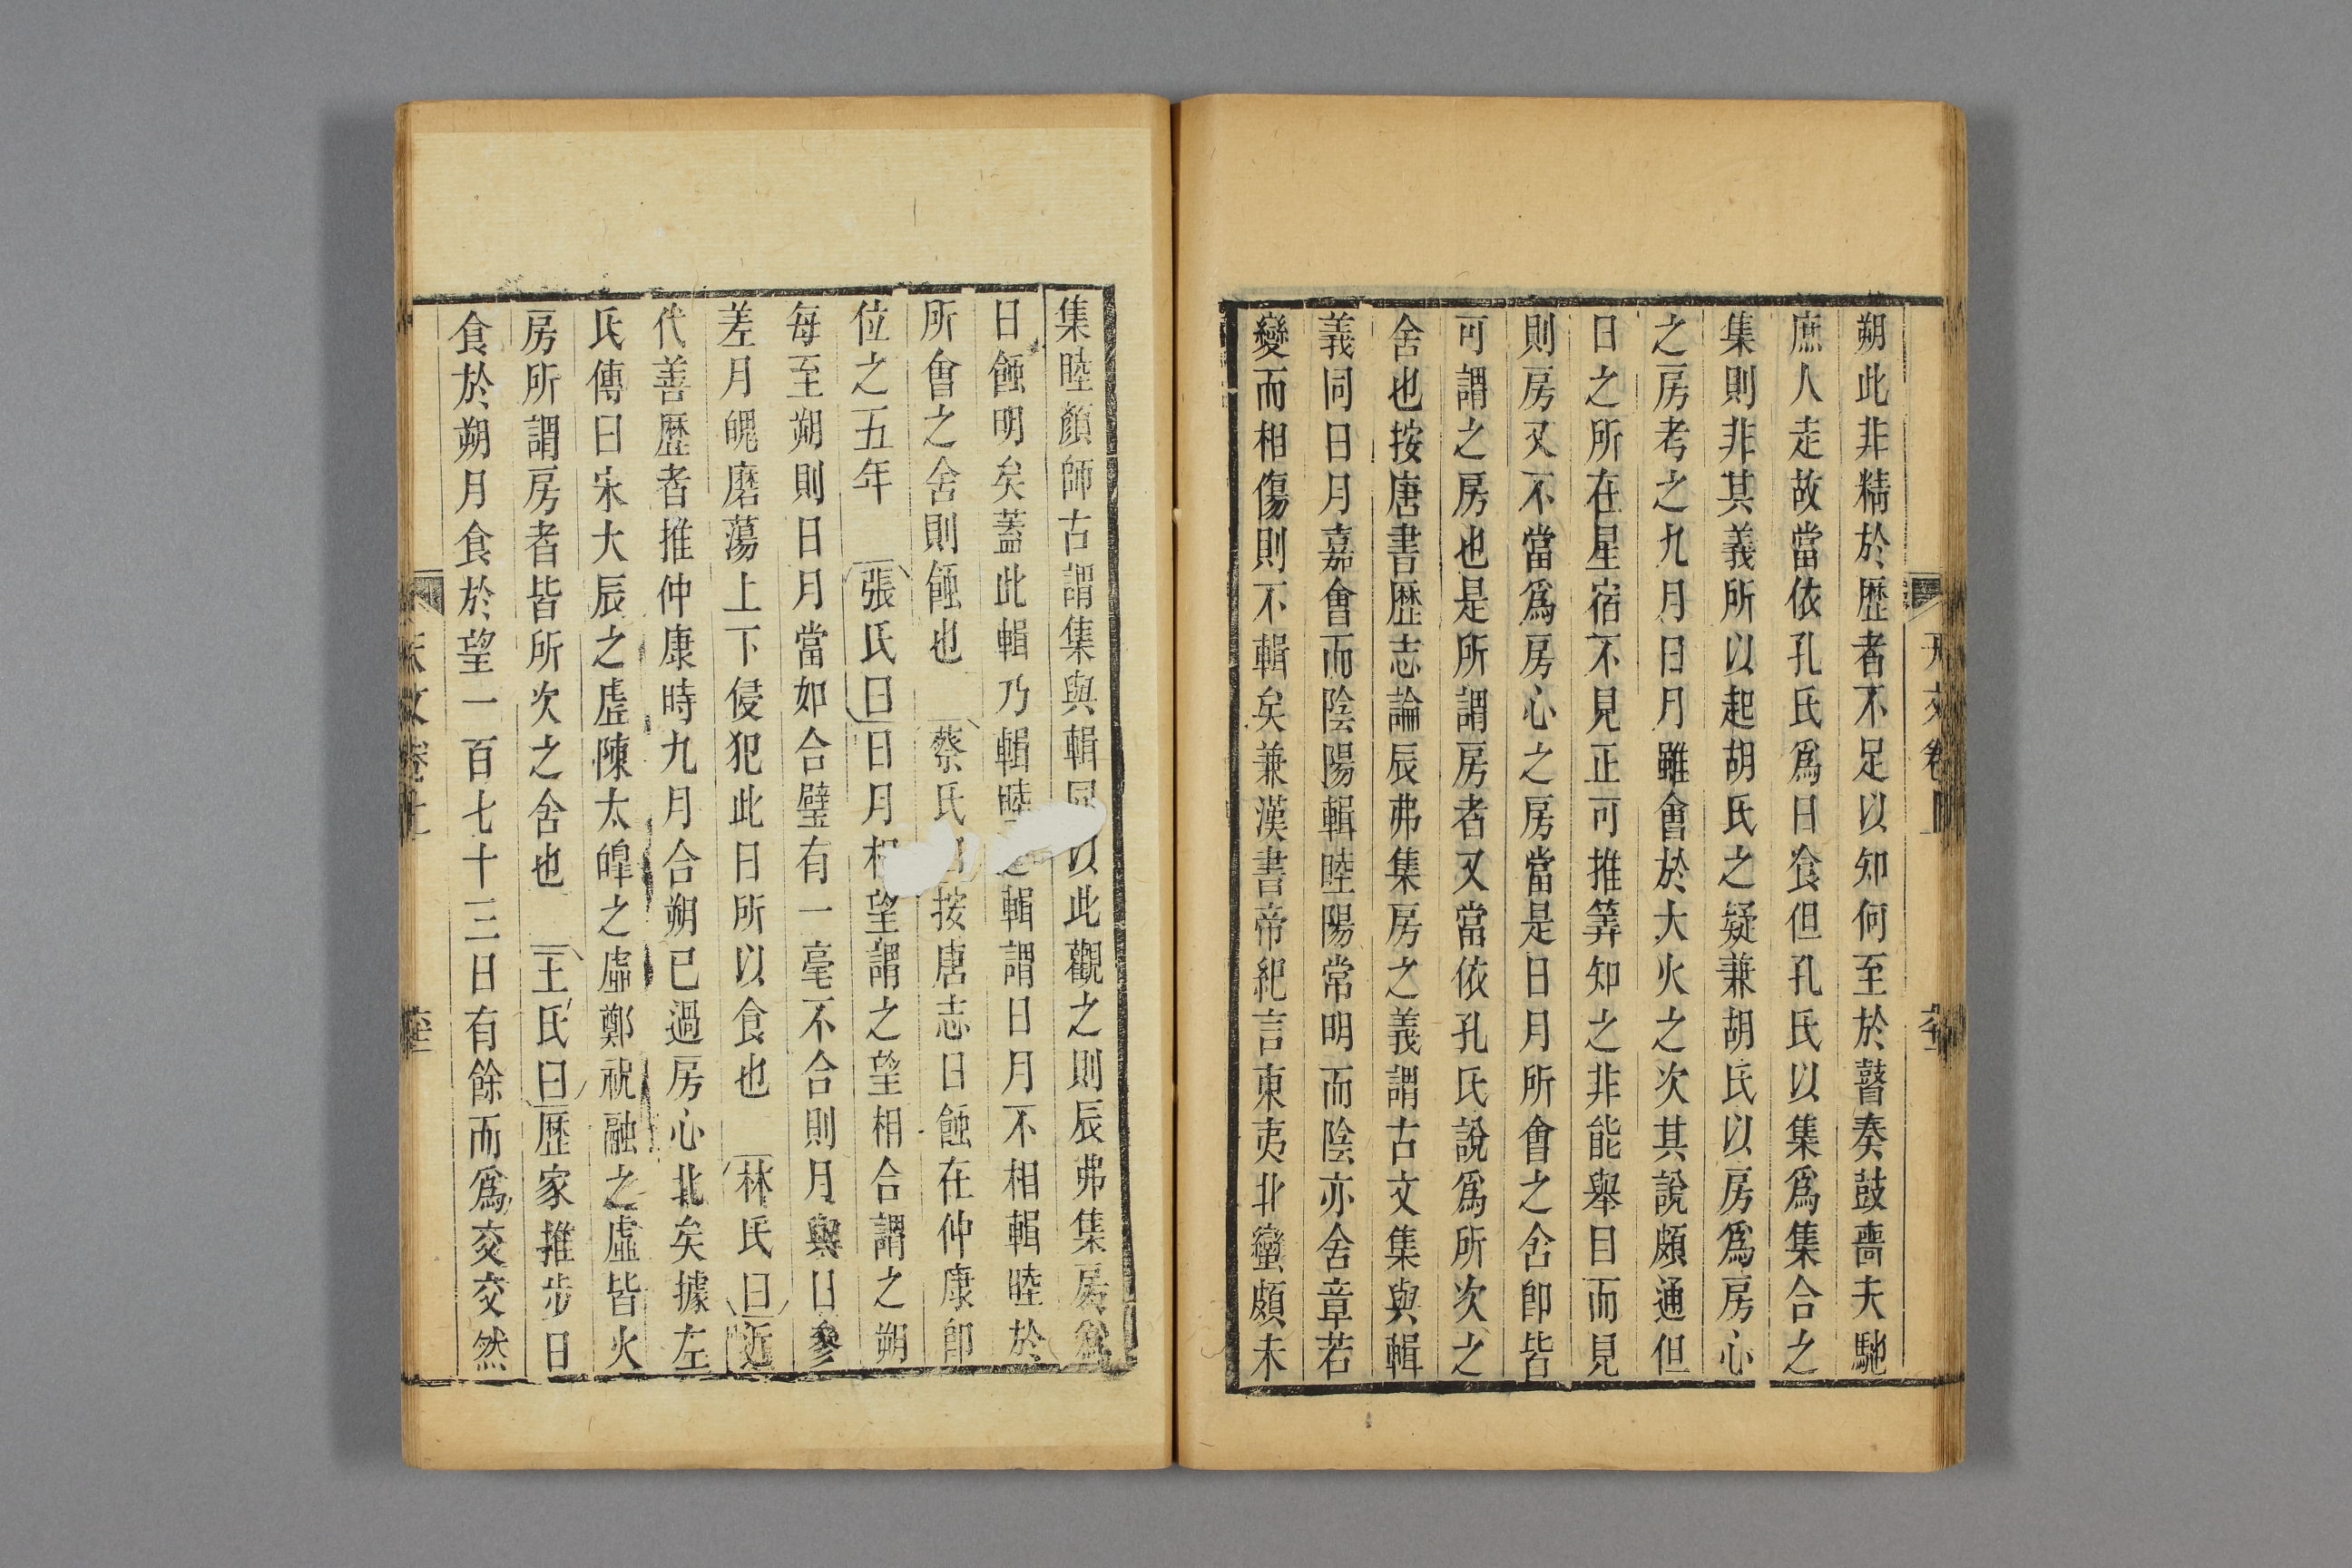 朔此非精於歷者不足以知何至於瞽奏鼓嗇夫馳
庶人走故當依孔氏爲日食但孔氏以集爲集合之
集則非其義所以起胡氏之疑兼胡氏以房爲房心
之房考之九月日月雖會於大火之次其說頗通但
日之所在星宿不見正可推筭知之非能舉目而見
則房又不當爲房心之房當是日月所會之舍卽皆
可謂之房也是所謂房者又當依孔氏說爲所次之
舍也按唐書歷志論辰弗集房之義謂古文集與輯
義同日月嘉會而陰陽輯睦陽常明而陰亦含章若
變而相傷則不輯矣兼漢書帝紀言東夷北蠻頗未
集睦顏師古謂集與輯同以此觀之則辰弗集房爲
日蝕明矣蓋此輯乃輯睦之輯謂日月不相輯睦於
所會之舍則蝕也　蔡氏曰按唐志日蝕在仲康卽
位之五年　張氏曰日月相望謂之望相合謂之朔
每至朔則日月當如合璧有一毫不合則月與日參
差月魄磨蕩上下侵犯此日所以食也　林氏曰近
代善歷者推仲康時九月合朔已過房心北矣據左
氏傳曰宋大辰之虛陳太皥之虛鄭祝融之虛皆火
房所謂房者皆所次之舍也　王氏曰歷家推步日
食於朔月食於望一百七十三日有餘而爲交交然